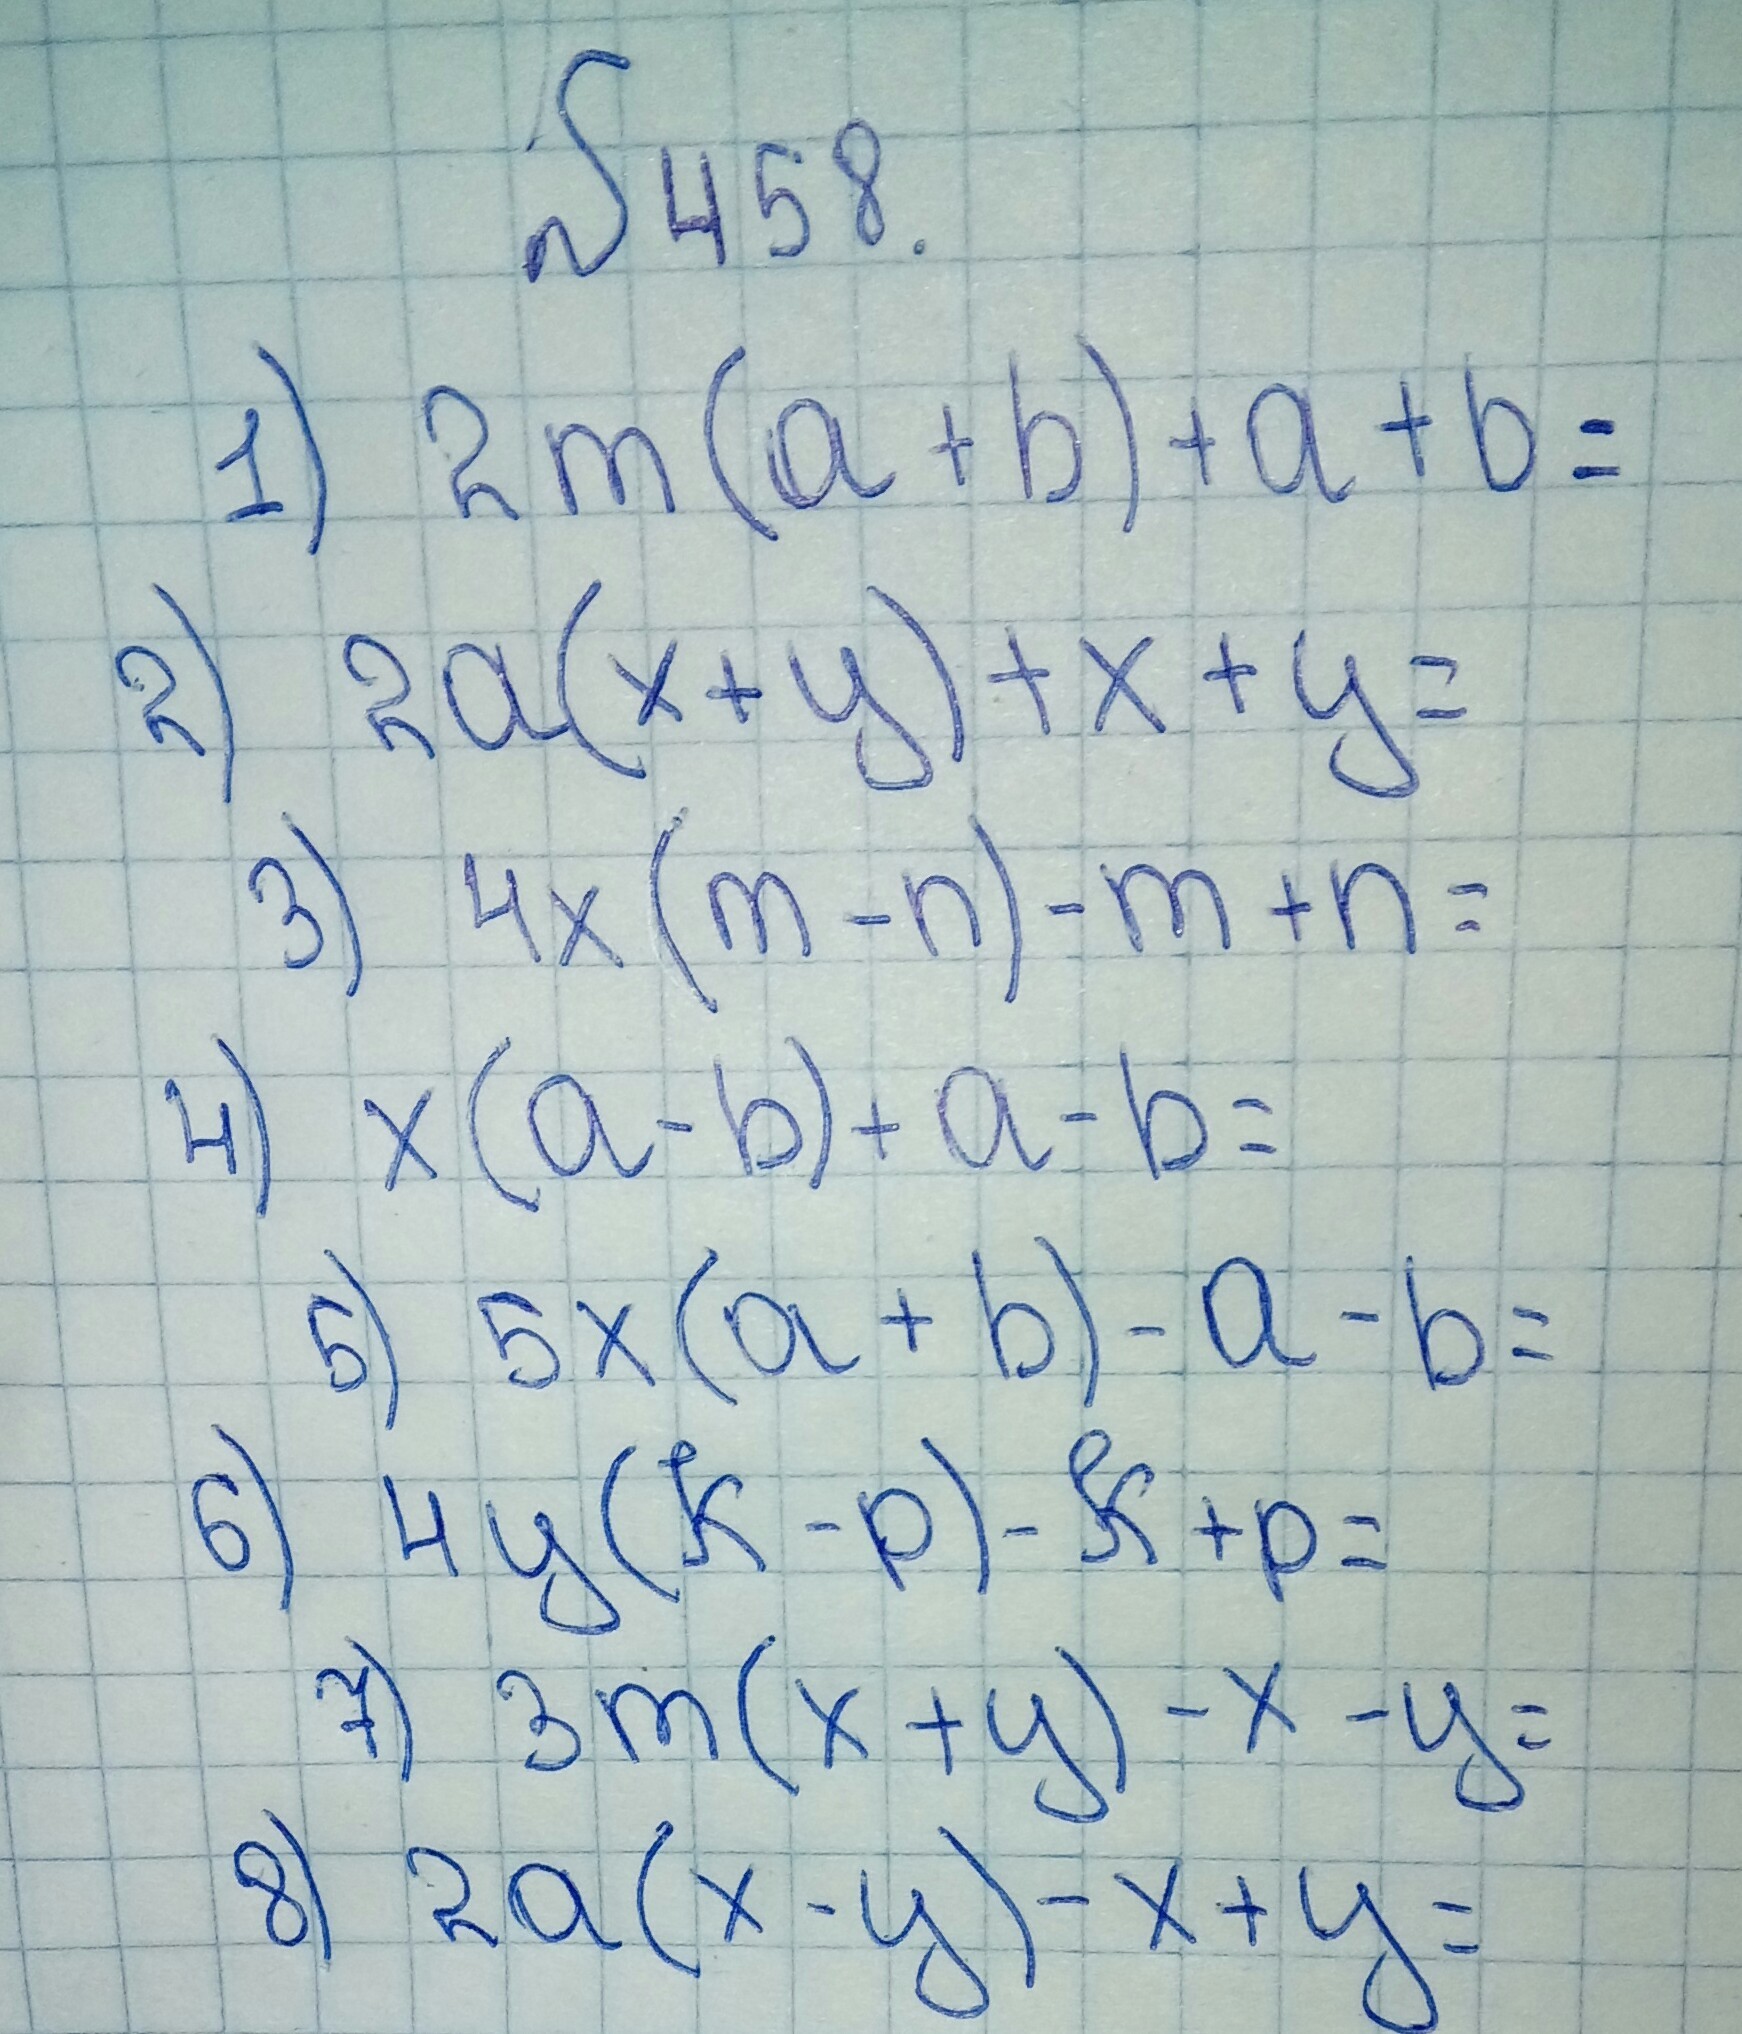 № 458.
1) 2m(a+b)+a+b=
2) 2a(x+y)+x+y=
3) 4x(m-n)-m+n=
4) x(a-b)+a-b=
5) 5x(a+b)-a-b=
6) 4y(k-p)-k+p=
7) 3m(x+y)-x-y=
8) 2a(x-y)-x+y=